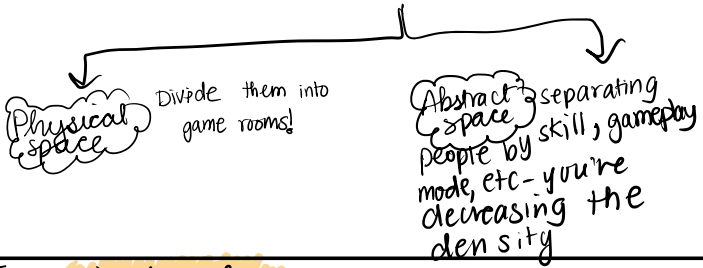 Physical space
Divide them into
game rooms!
Abstract space → separating
people by skill, gameplay
mode, etc - you're
decreasing the
density